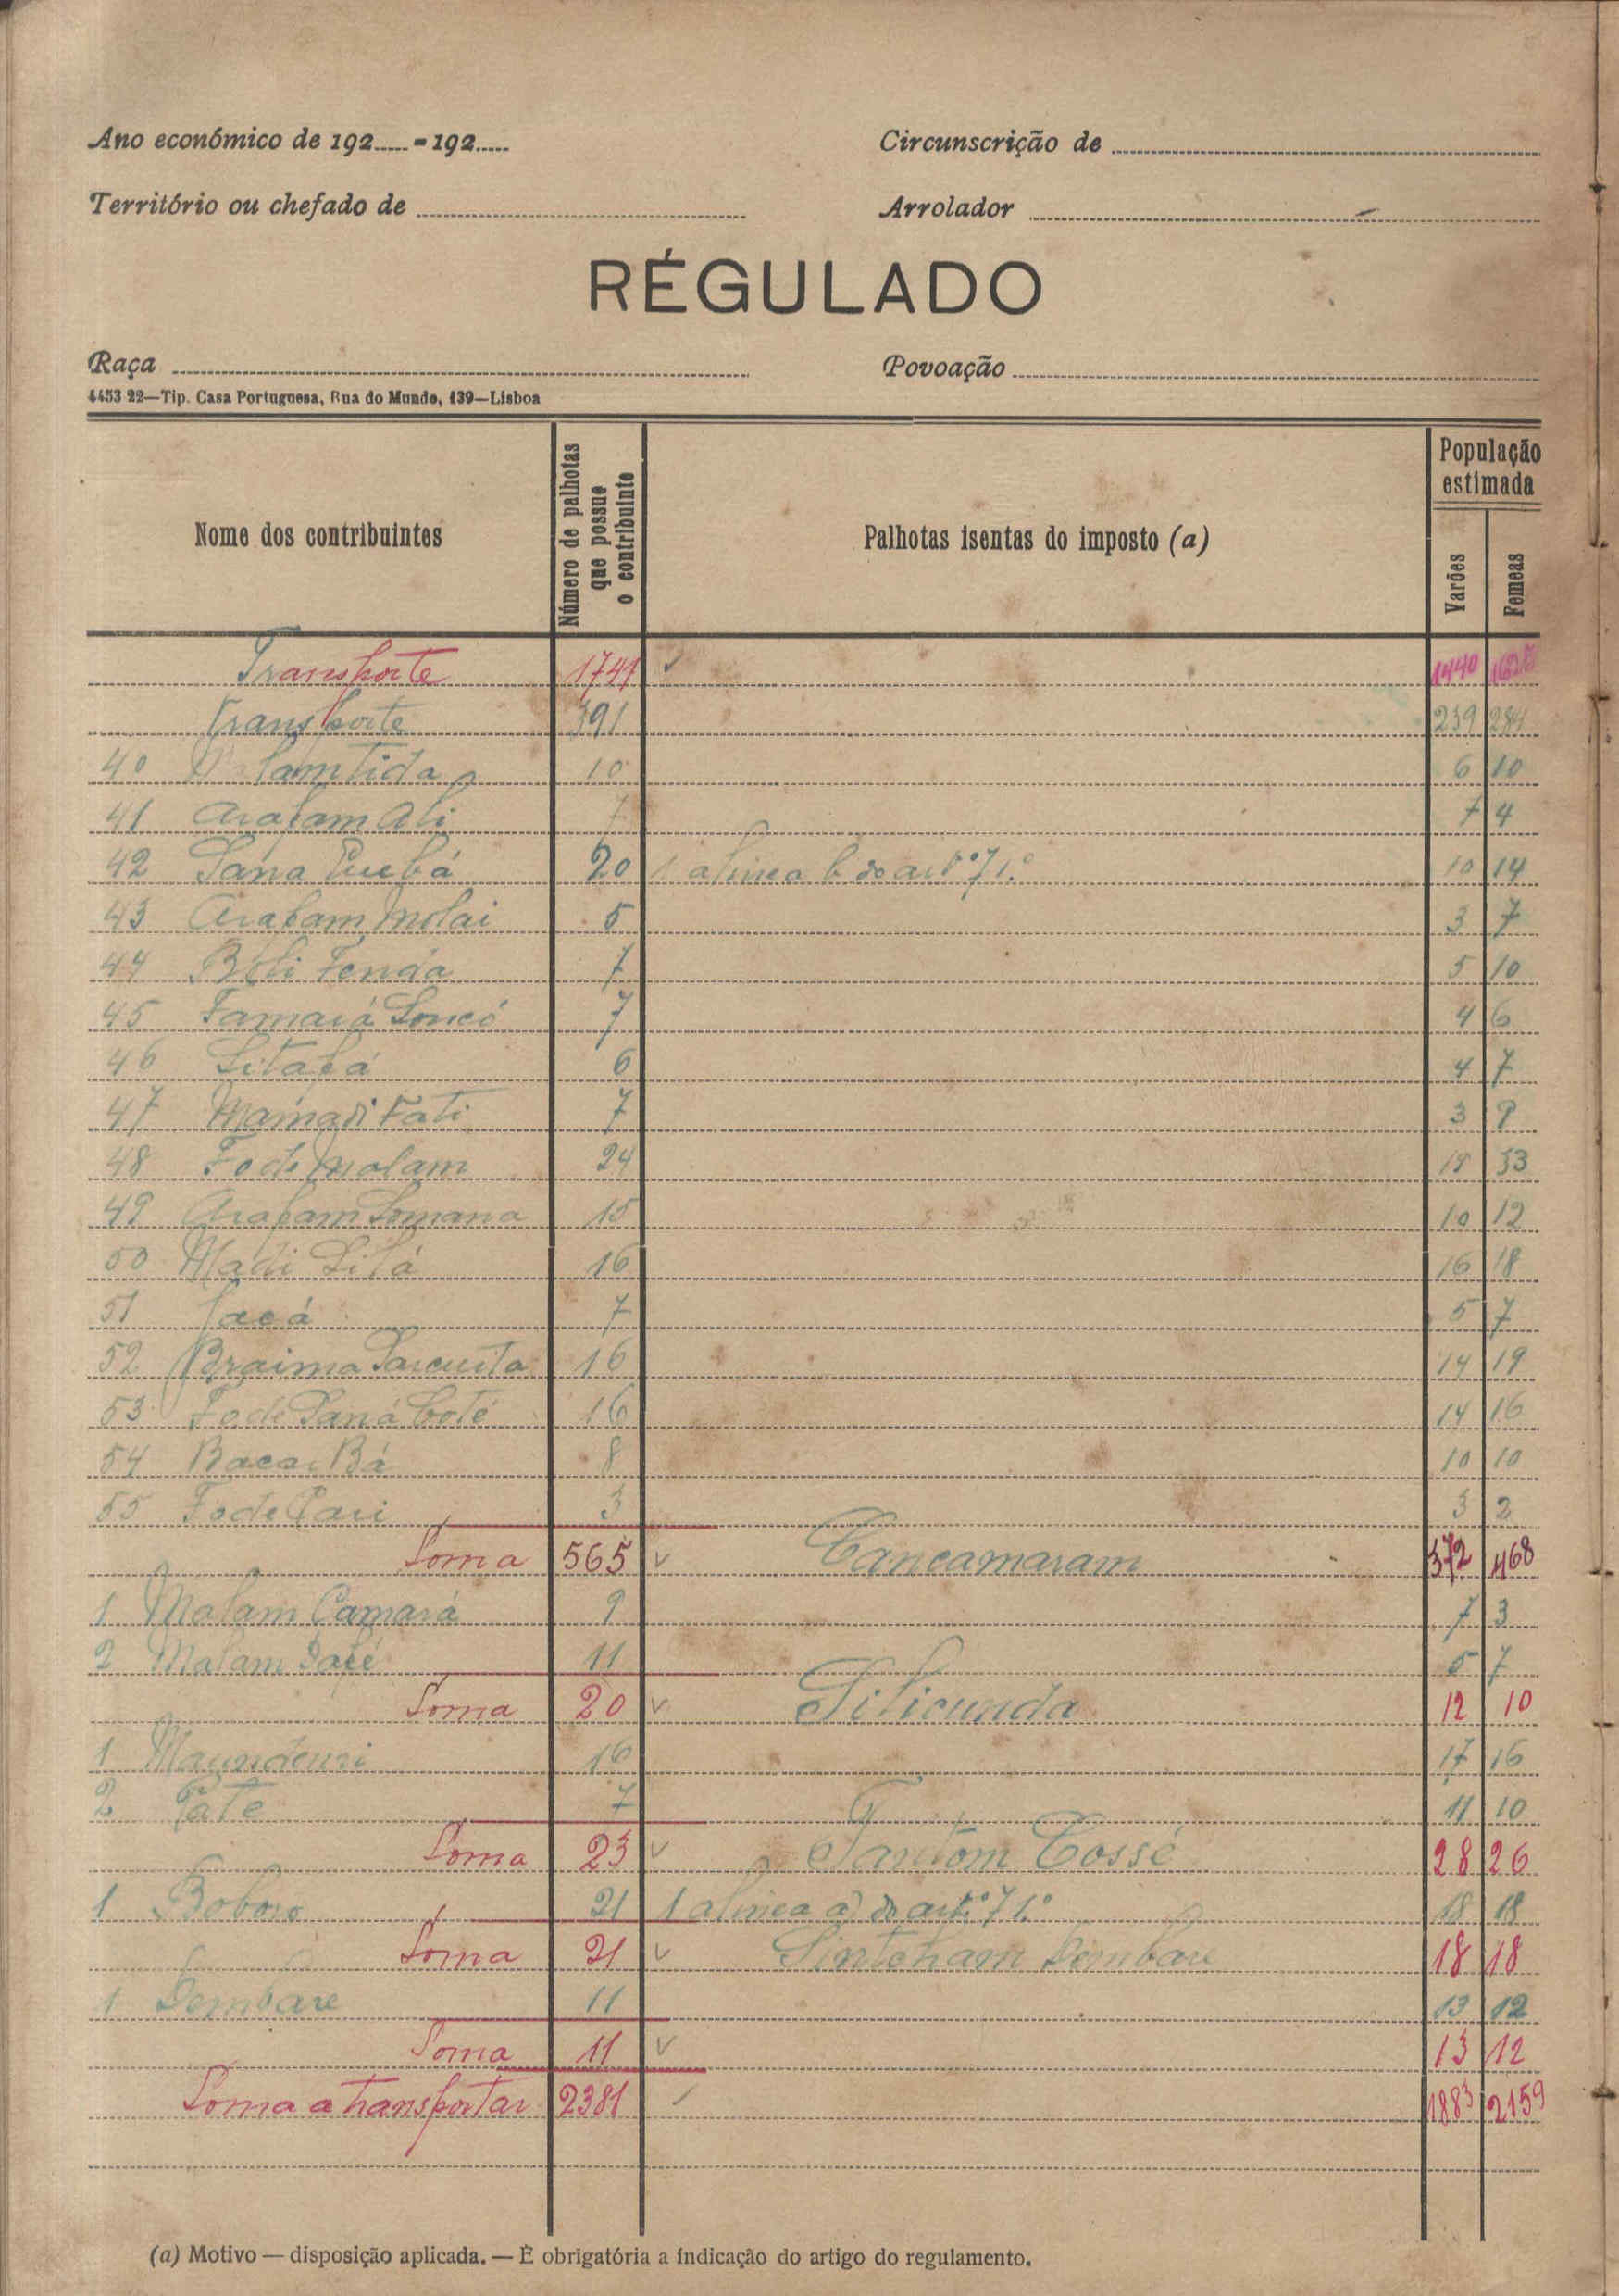 Ano económico de 192..... - 192.....
Circunscrição de
Território ou chefado de
Arrolador
RÉGULADO
Raça
Povoação
4453 22—Tip. Casa Portuguesa, Rua do Mundo, 139—Lisboa
Nome dos contribuintes
Número de palhotas que possue o contribuinte
Palhotas isentas do imposto (a)
População estimada
Varões
Femeas
Transporte 1741 1440
Transporte 391 239 284
40 10 6 10
41 Arafam Ali 7 7 4
42 Sana 20 1 alinea b do artº 71.º 10 14
43 Arafam Molai 5 3 7
44 Boli Fenda 7 5 10
45 Famará Soncó 7 4 6
46 6 4 7
47 Mamadi Fati 7 3 9
48 Fode Malam 24 18 33
49 Arafam Somana 15 10 12
50 Madi 16 16 18
51 7 5 7
52 Braima 16 14 19
53 Fode Sana 16 14 16
54 Bacar Bá 8 10 10
55 Fode 3 3 2
Soma 565 Cancamaram 372 468
1 Malam Camará 9 7 3
2 Malam 11 5 7
Soma 20 12 10
1 16 17 16
2 Paté 7 11 10
Soma 23 Tantom Cossé 28 26
1 Boboro 21 1 alinea a) do artº 71.º 18 18
Soma 21 Sintcham Dembare 18 18
1 Dembare 11 13 12
Soma 11 13 12
Soma a transportar 2381 1883 2159
(a) Motivo — disposição aplicada. — É obrigatória a indicação do artigo do regulamento.